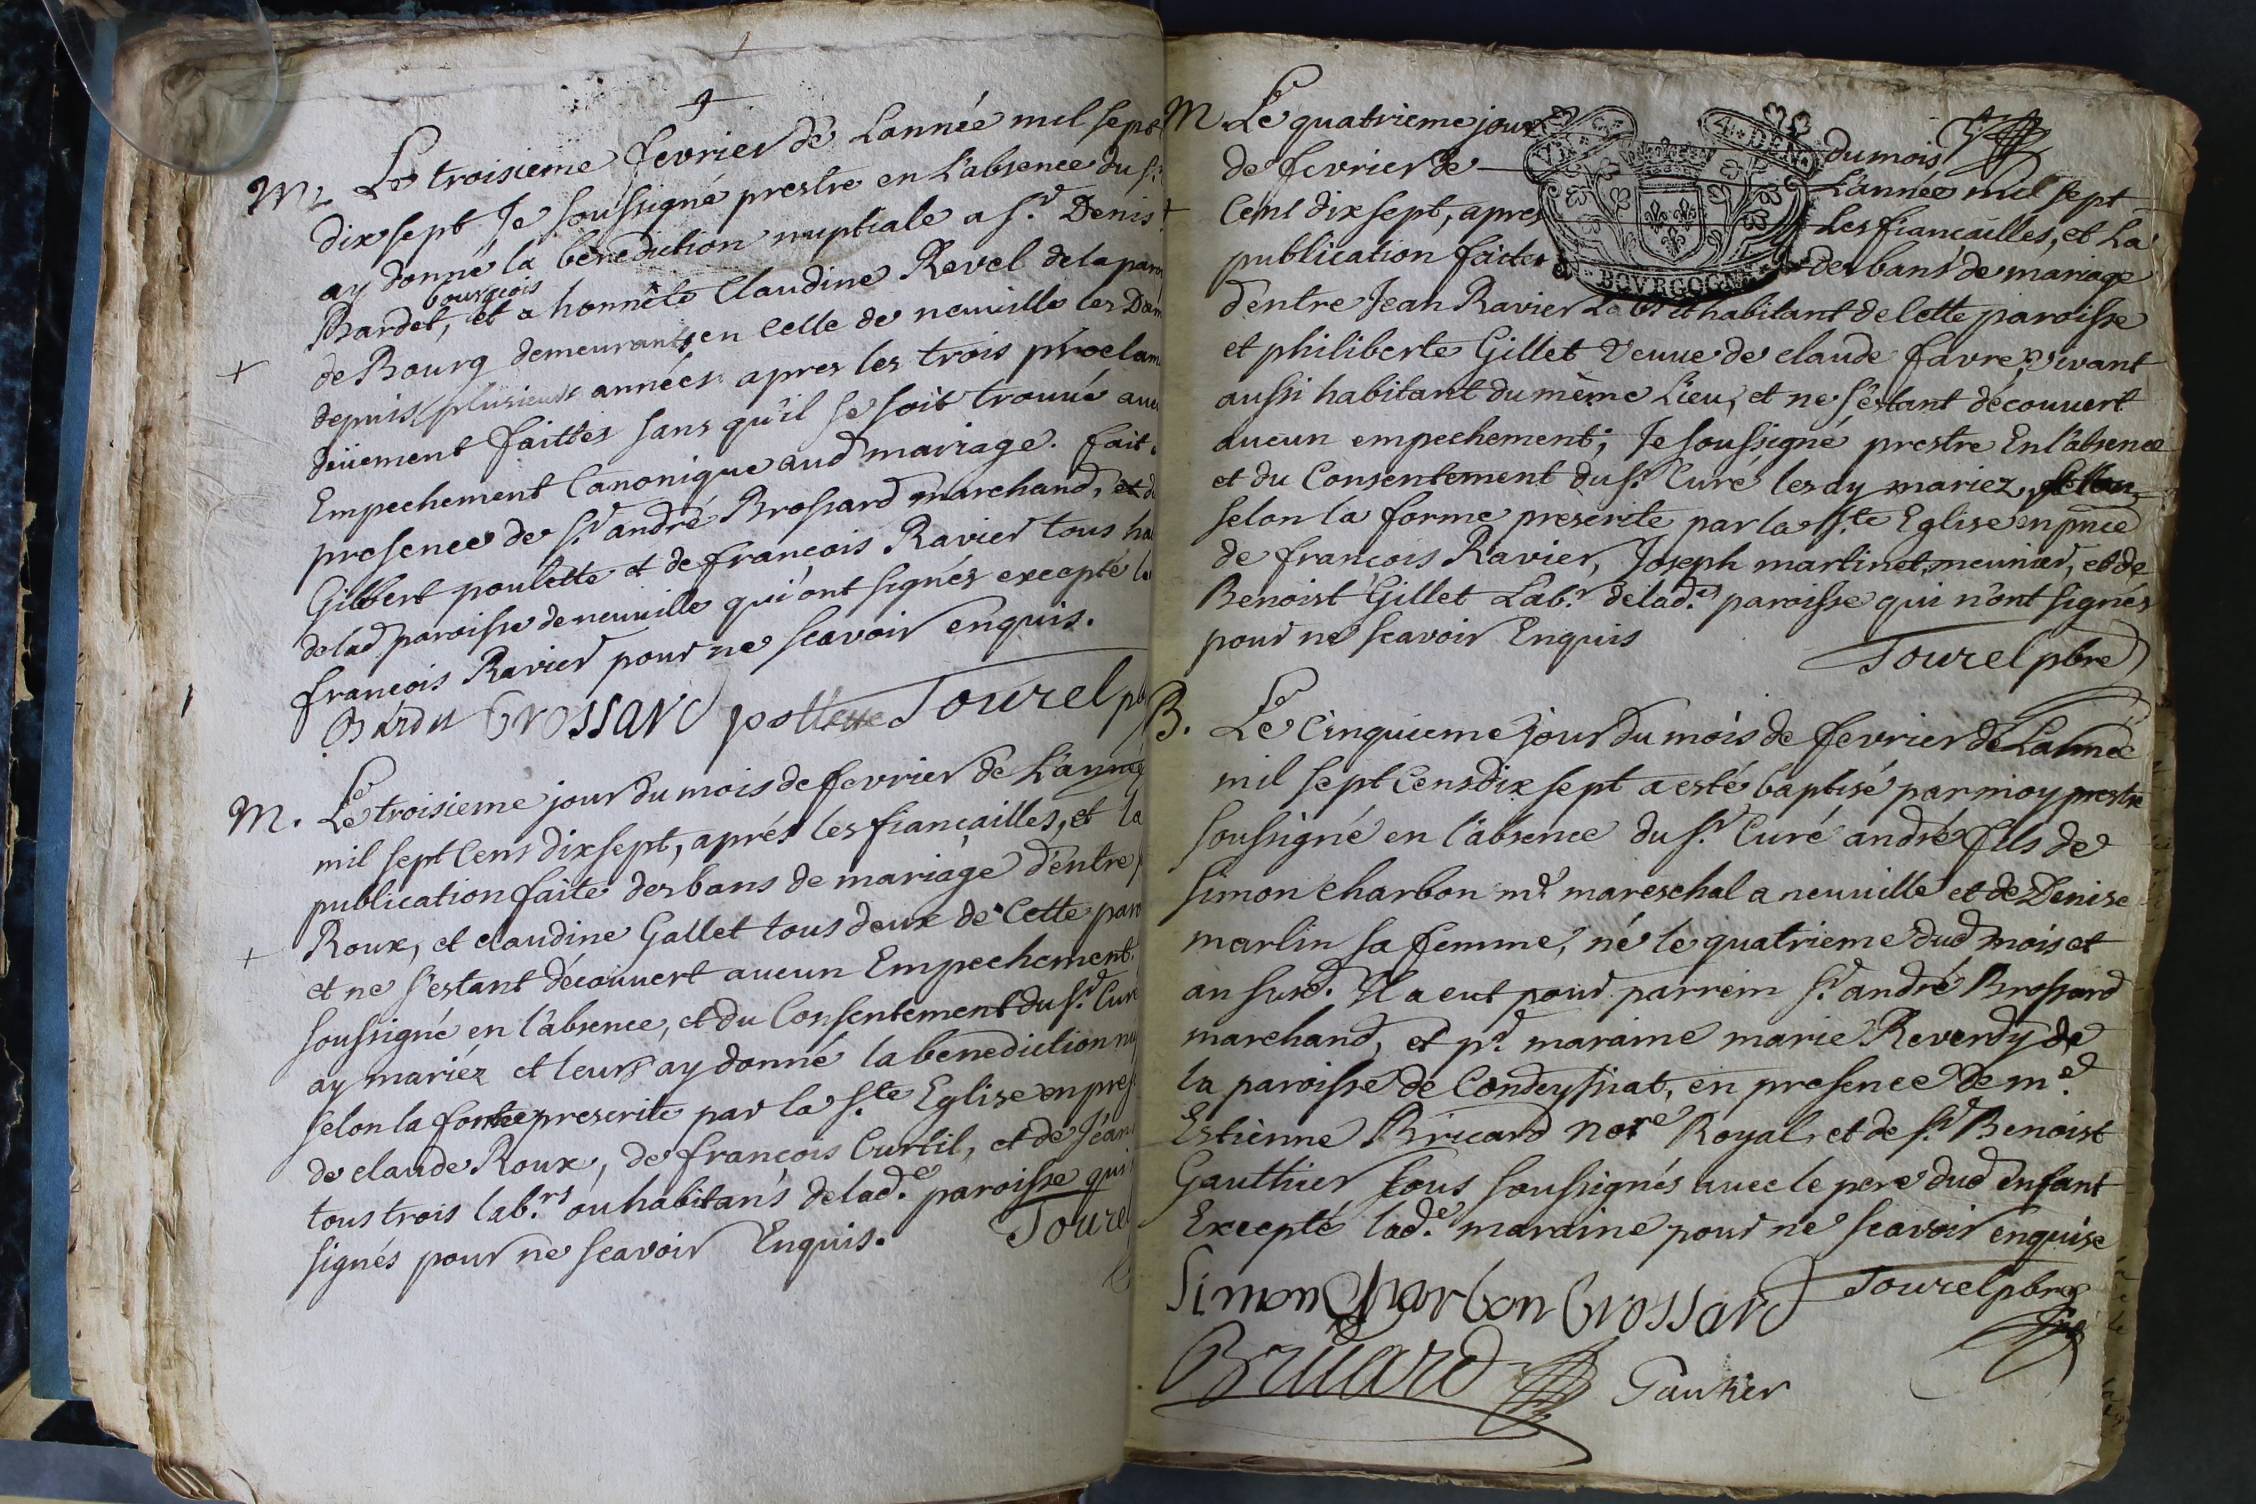 M. Le troisieme fevrier de Lannée mil sept
dix sept Je soussigné prestre en L'absence du Sr.
ay donné la benediction nuptiale a Sr. Denis
bourgeois
Bardet, et a honnête Claudine Revel de la paro
de Bourg demeurants en Celle de neuuille les Dam
depuis plusieurs années apres les trois proclam
deüement faittes sans qu'il se soit trouué auc
Empechement Canonique aud mariage. fait
presence de Sr. andré Brossard marchand, et de
Gilbert poulette et de françois Ravier tous ha
delad paroisse de neuuille qui ont signés excepté le
françois Ravier pour ne scavoir enquis.
Bardet Brossard Tourel p
M. Le troisieme jour du mois de fevrier de L'année
mil sept Cens dix sept, aprés les fiancailles, et la
publication faite des bans de mariage d'entre
Roux, et claudine Gallet tous deux de Cette paro
et ne s'estant découuert aucun Empechement.
soussigné en l'absence, et du Consentement du Sr. Curé
ay mariéz et leurs ay donné la benediction nu
selon la forme prescrite par la Ste Eglise en pres
de claude Roux, de françois Curtil, et de Jean
tous trois lab.rs ou habitans de lad.e paroisse qui
signés pour ne scavoir Enquis. Tourel
M. Le quatrieme jour du mois
VN S. 4. DEN.
BOVRGOGNE
de fevrier de L'année mil sept
Cens dix sept, apres les fiancailles, et La
publication faite des bans de mariage
d'entre Jean Ravier Lab.r et habitant de Cette paroisse
et philiberte Gillet veuue de claude favre, vivant
aussi habitant du même Lieu, et ne s'estant découuert
aucun empechement; Je soussigné prestre En l'absence
et du Consentement du Sr. Curé les ay mariez,
selon la forme prescrite par la Ste Eglise en pnce
de françois Ravier, Joseph martinet, meunier, et de
Benoist Gillet Lab.r de lad.e paroisse qui n'ont signés
pour ne scavoir Enquis
Tourel pbre
B. Le Cinquieme jour du mois de fevrier de Lannée
mil sept Cens dix sept a esté baptisé par moy prestre
soussigné en l'absence du Sr. Curé andré fils de
Simon charbon md. mareschal a neuuille et de Denise
marlin sa femme, né le quatrieme dud mois et
an susd. Il a eut pour parrein Sr. andré Brossard
marchand, et pr. maraine marie Reverdy de
la paroisse de Condeyssiat, en presence de me.
Estienne Bricard nore Royal, et de Sr. Benoist
Gauthier tous soussignés avec le pere dud enfant
Excepté lad.e maraine pour ne scavoir enquise
Simon Charbon Brossard Tourel pbre
Bricard Gautier